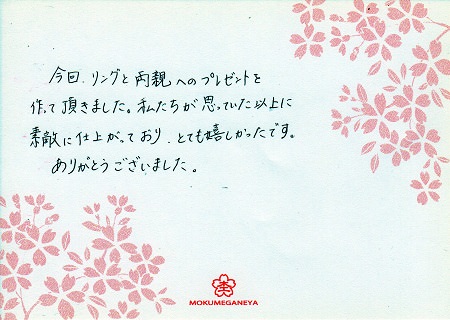 今回、リングと両親へのプレゼントを
作って頂きました。私たちが思っていた以上に
素敵に仕上がっており、とても嬉しかったです。
ありがとうございました。
MOKUMEGANEYA